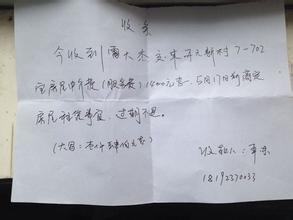 收条
今收到雷大杰交来开元新村7-702
室房屋中介费(服务费)1400元整,5月17日到商定
房屋租赁事宜,过期不退。
(大写:壹仟肆佰元整)
收款人:
18192370033